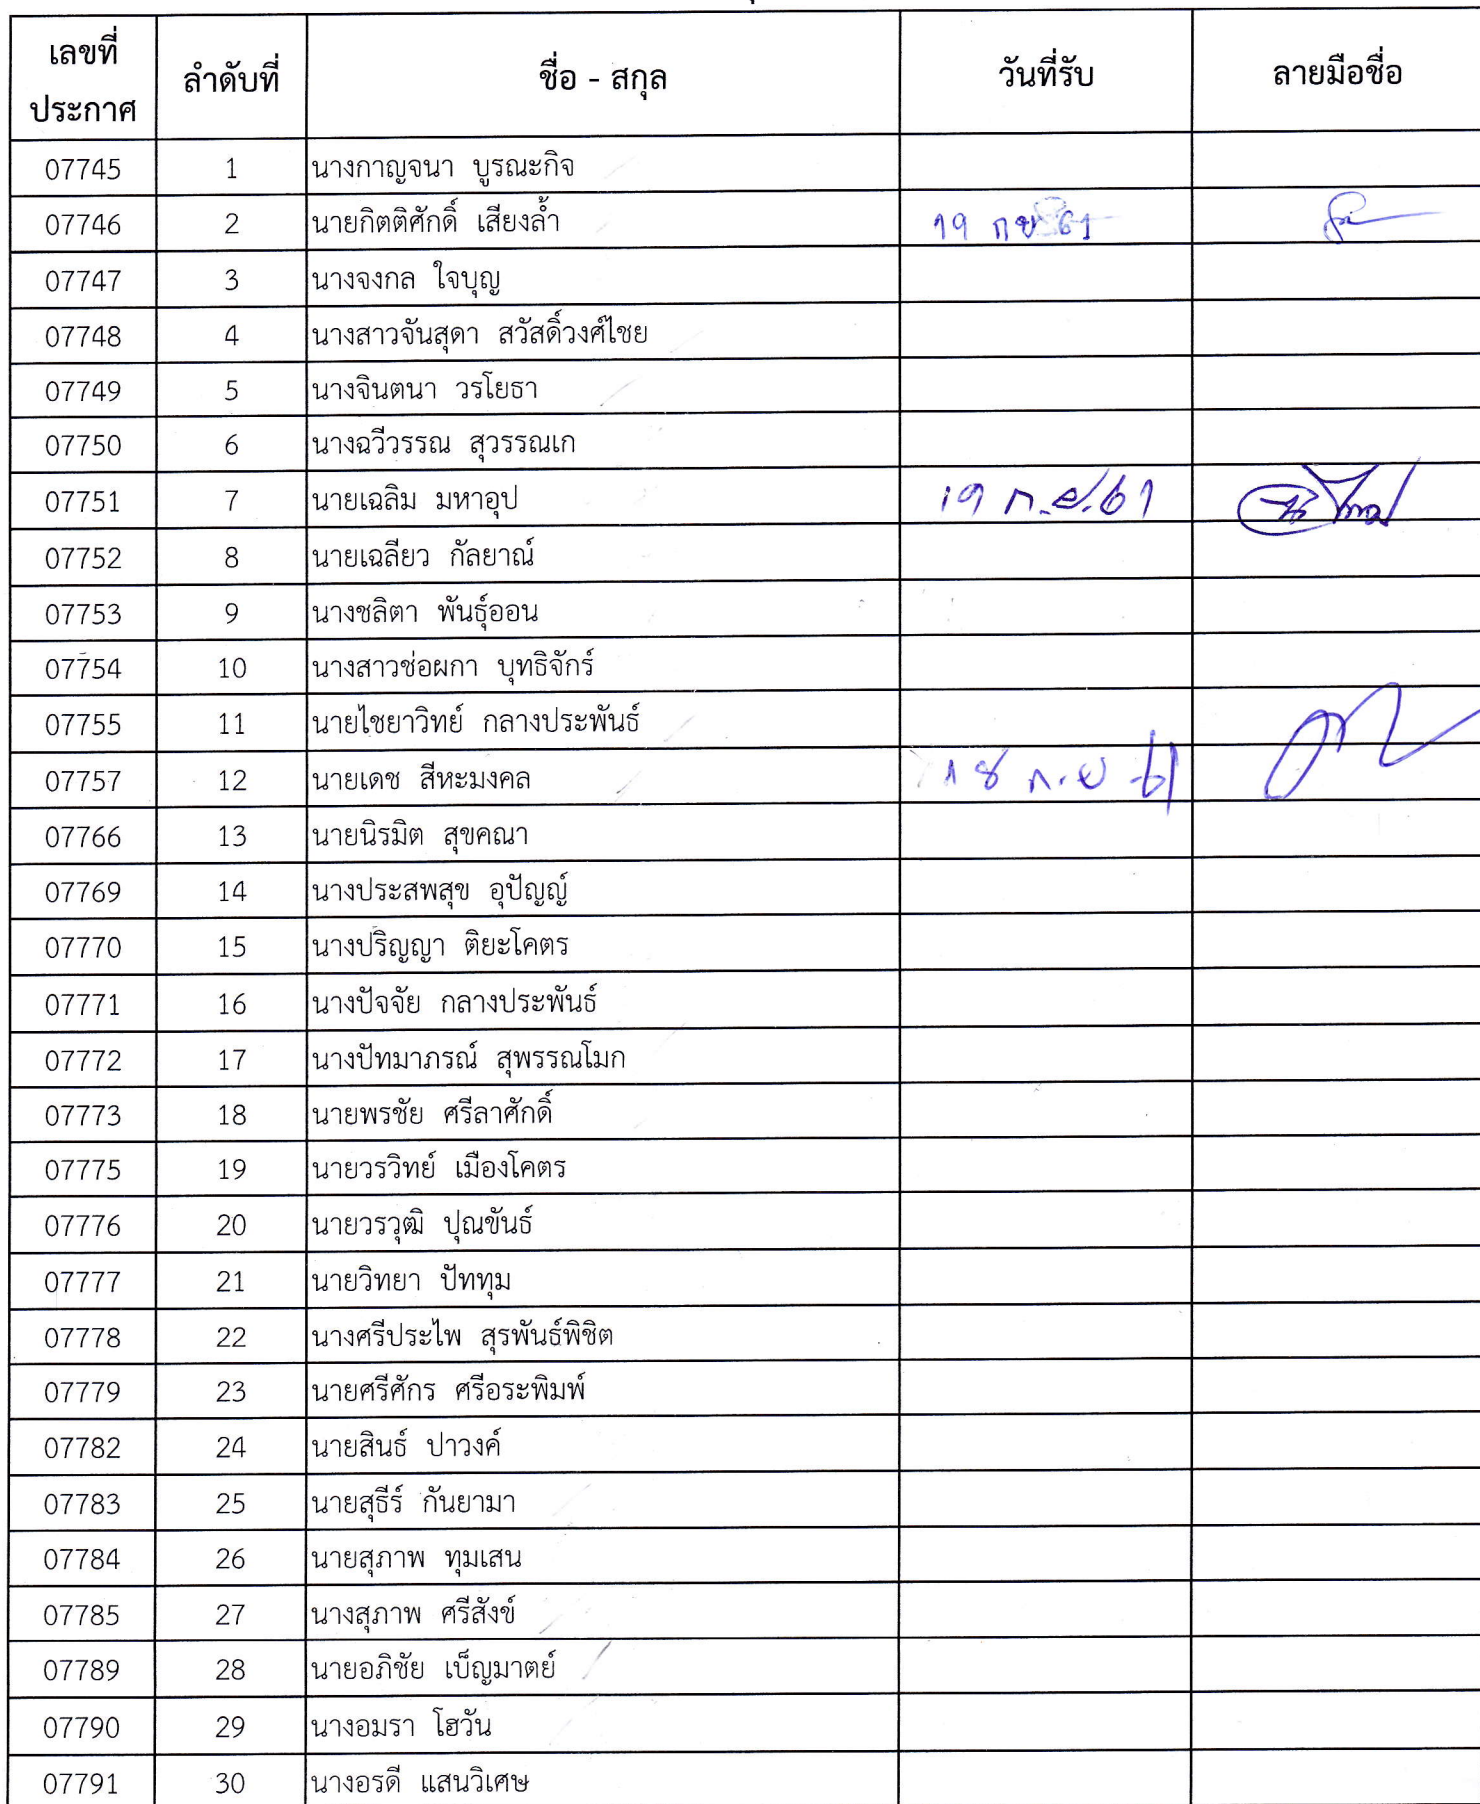 เลขที่ประกาศ ลำดับที่ ชื่อ - สกุล วันที่รับ ลายมือชื่อ
07745 1 นางกาญจนา บูรณะกิจ
07746 2 นายกิตติศักดิ์ เสียงล้ำ 19 กย 61
07747 3 นางจงกล ใจบุญ
07748 4 นางสาวจันสุดา สวัสดิ์วงศ์ไชย
07749 5 นางจินตนา วรโยธา
07750 6 นางฉวีวรรณ สุวรรณเก
07751 7 นายเฉลิม มหาอุป 19 ก.ย.61
07752 8 นายเฉลียว กัลยาณ์
07753 9 นางชลิตา พันธุ์ออน
07754 10 นางสาวช่อผกา บุทธิจักร์
07755 11 นายไชยาวิทย์ กลางประพันธ์
07757 12 นายเดช สีหะมงคล 18 ก.ย 61
07766 13 นายนิรมิต สุขคณา
07769 14 นางประสพสุข อุปัญญ์
07770 15 นางปริญญา ติยะโคตร
07771 16 นางปัจจัย กลางประพันธ์
07772 17 นางปัทมาภรณ์ สุพรรณโมก
07773 18 นายพรชัย ศรีลาศักดิ์
07775 19 นายวรวิทย์ เมืองโคตร
07776 20 นายวรวุฒิ ปุณขันธ์
07777 21 นายวิทยา ปัททุม
07778 22 นางศรีประไพ สุรพันธ์พิชิต
07779 23 นายศรีศักร ศรีอระพิมพ์
07782 24 นายสินธ์ ปาวงค์
07783 25 นายสุธีร์ กันยามา
07784 26 นายสุภาพ ทุมเสน
07785 27 นางสุภาพ ศรีสังข์
07789 28 นายอภิชัย เบ็ญมาตย์
07790 29 นางอมรา โฮวัน
07791 30 นางอรดี แสนวิเศษ